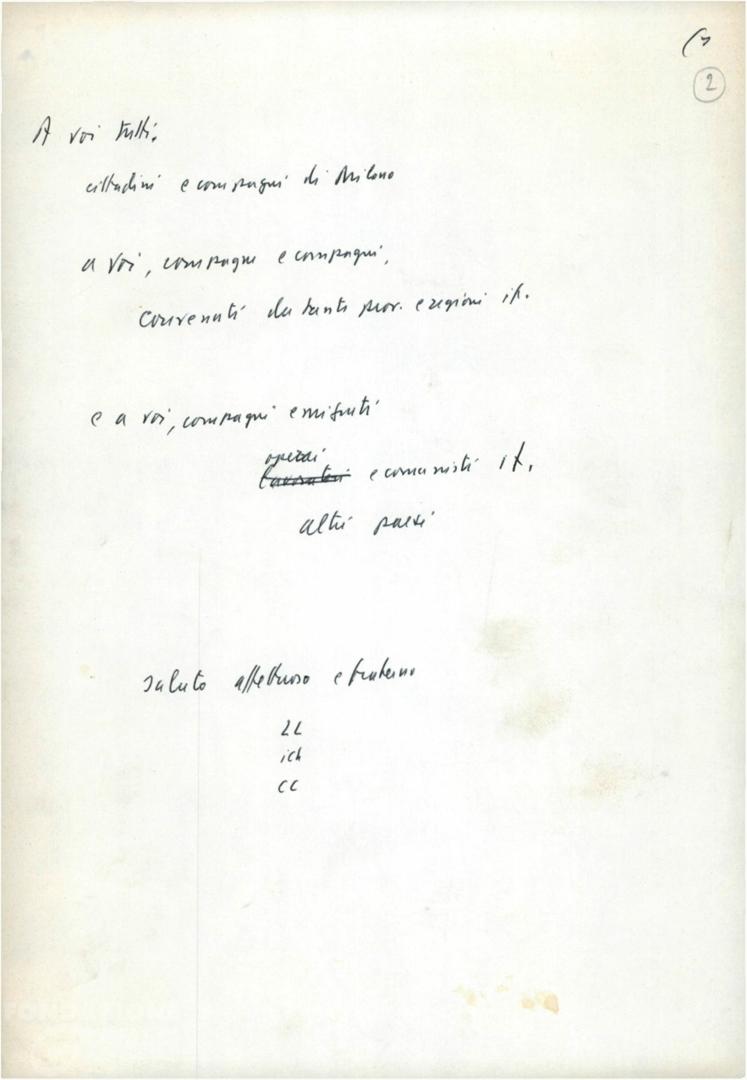 2
A voi tutti,
cittadini e compagni di Milano
a voi, compagne e compagni,
convenuti da tante prov. e regioni it.
e a voi, compagni emigrati
operai
lavoratori e comunisti it.
altri paesi
saluto affettuoso e fraterno
CC